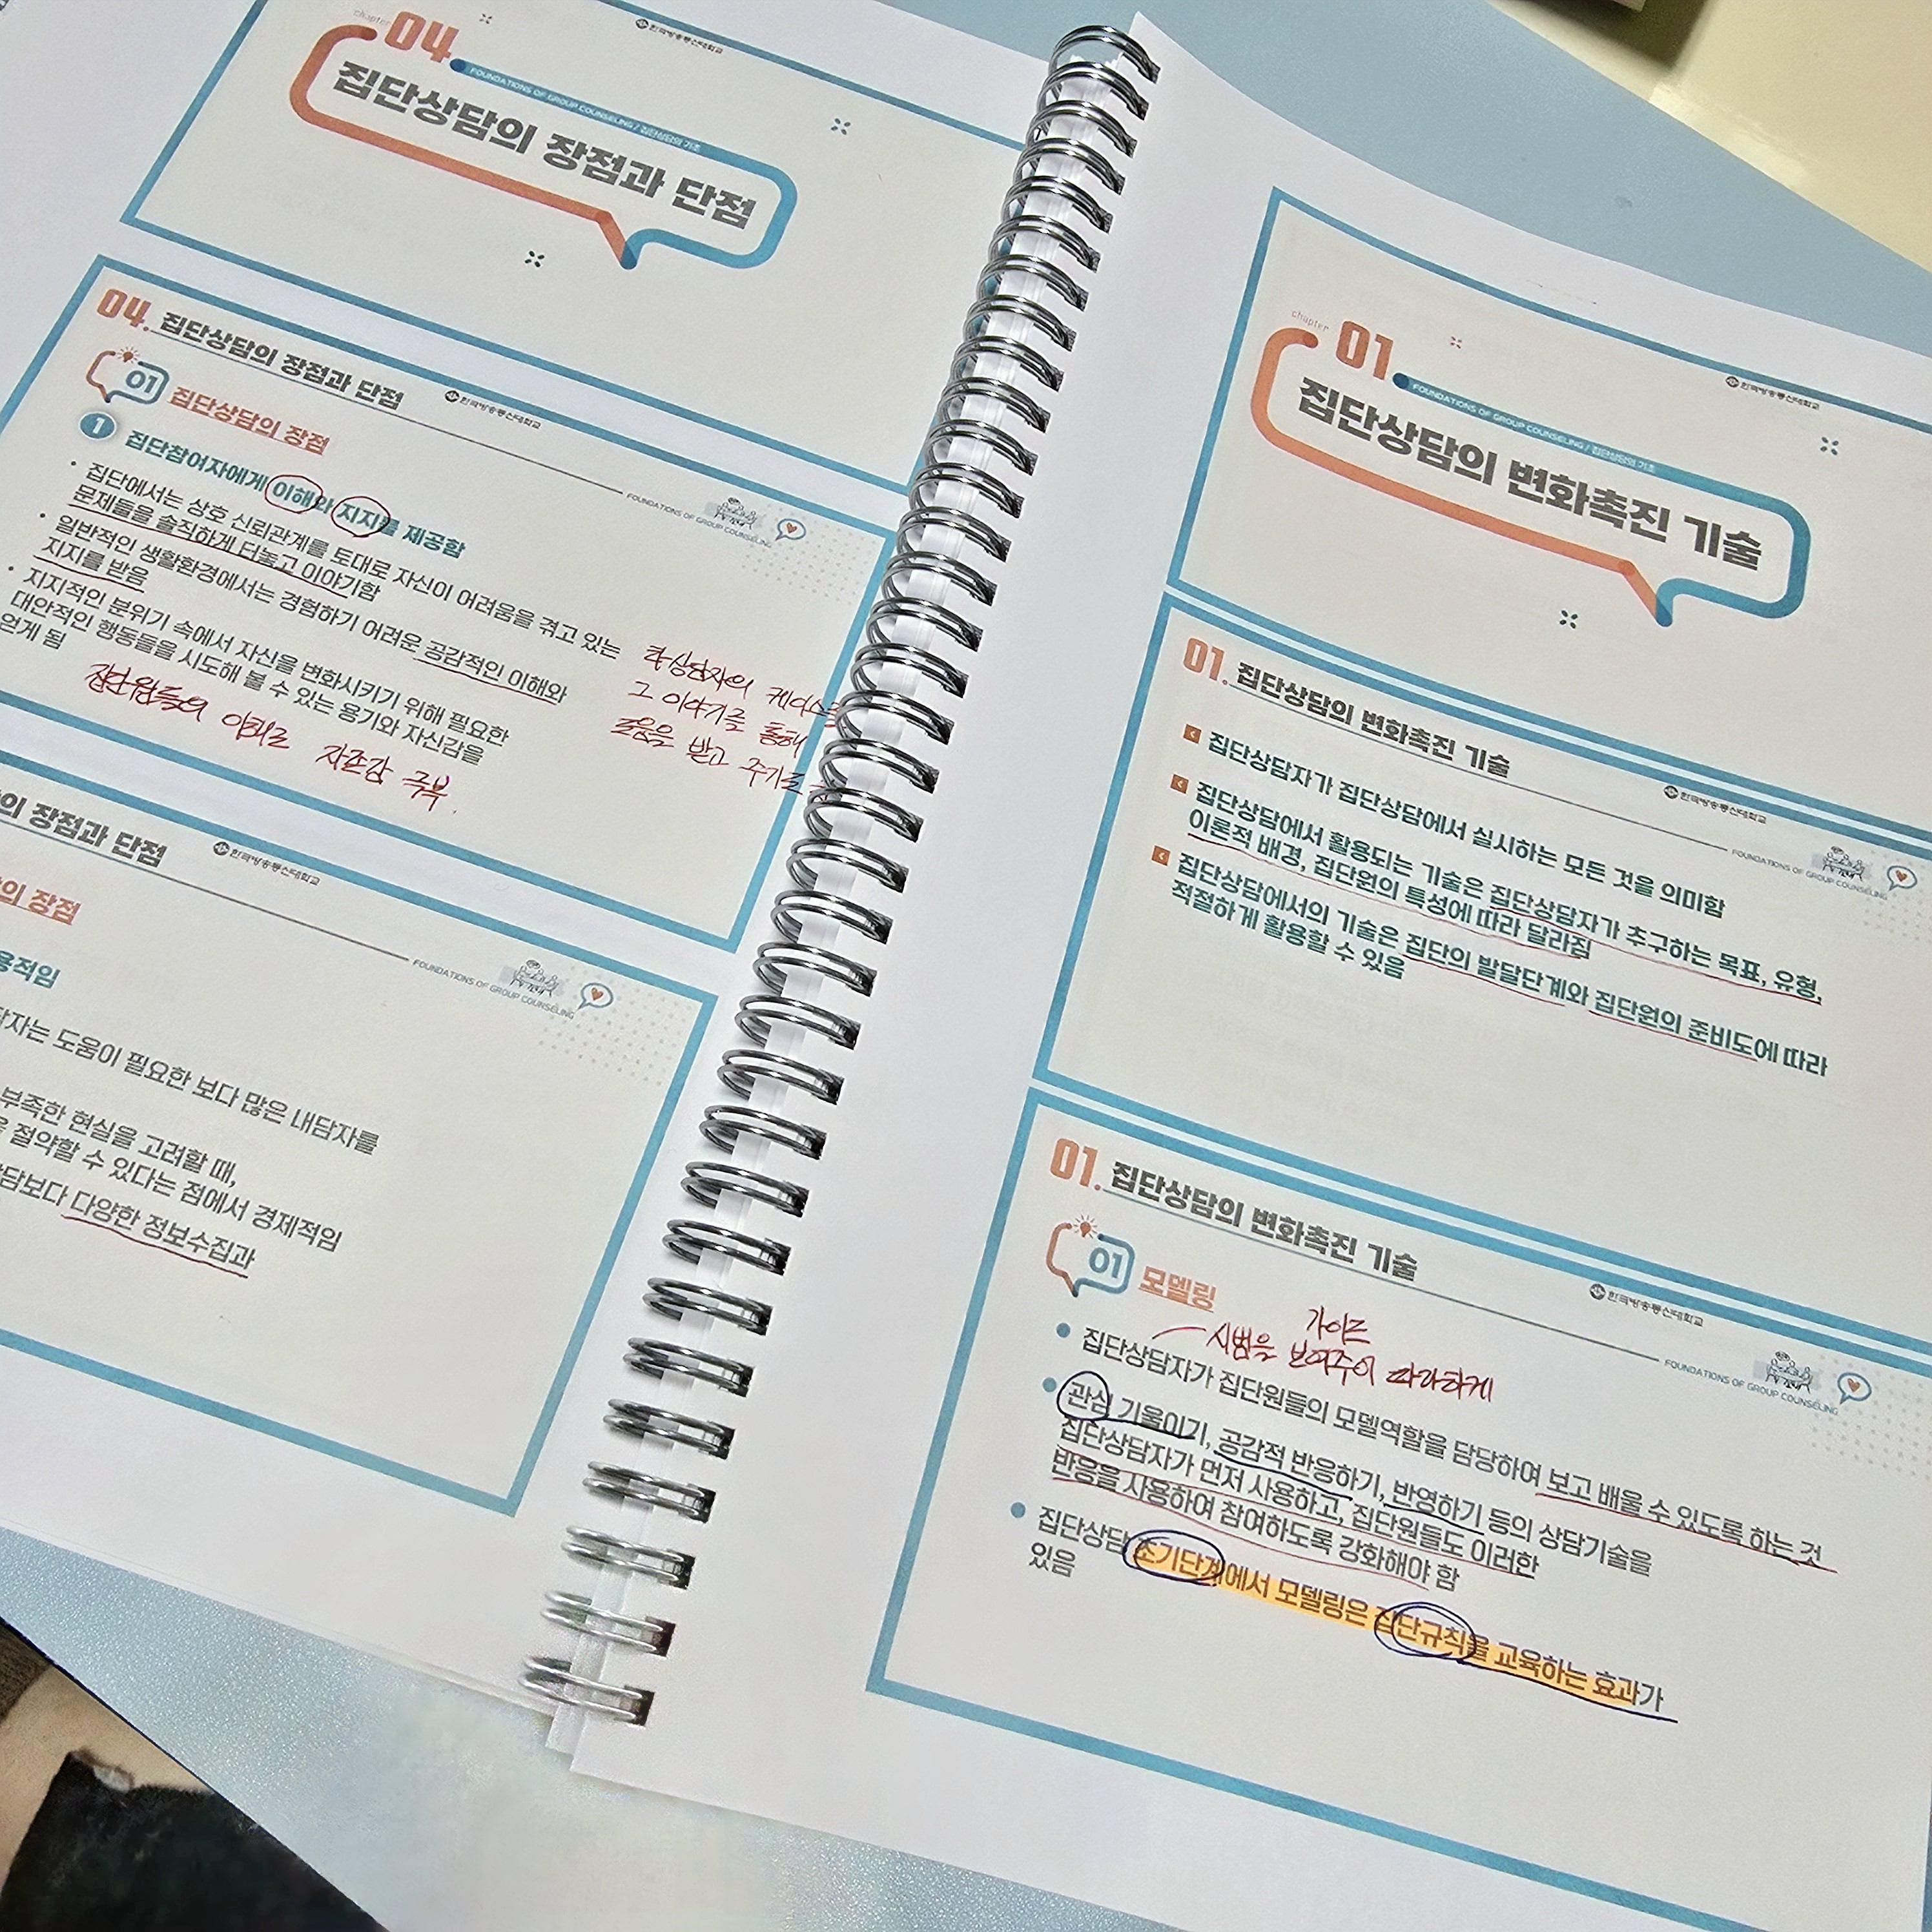 chapter 04
한국방송통신대학교
FOUNDATIONS OF GROUP COUNSELING / 집단상담의 기초
집단상담의 장점과 단점
04. 집단상담의 장점과 단점
한국방송통신대학교
FOUNDATIONS OF GROUP COUNSELING
01 집단상담의 장점
1 집단참여자에게 이해와 지지를 제공함
• 집단에서는 상호 신뢰관계를 토대로 자신이 어려움을 겪고 있는
문제들을 솔직하게 터놓고 이야기함
• 일반적인 생활환경에서는 경험하기 어려운 공감적인 이해와
지지를 받음
• 지지적인 분위기 속에서 자신을 변화시키기 위해 필요한
대안적인 행동들을 시도해 볼 수 있는 용기와 자신감을
얻게 됨
그 이야기를 통해
도움을 받고 주기도
집단원들의
의 장점과 단점
한국방송통신대학교
FOUNDATIONS OF GROUP COUNSELING
의 장점
용적임
자는 도움이 필요한 보다 많은 내담자를
부족한 현실을 고려할 때,
절약할 수 있다는 점에서 경제적임
담보다 다양한 정보수집과
chapter 01
한국방송통신대학교
FOUNDATIONS OF GROUP COUNSELING / 집단상담의 기초
집단상담의 변화촉진 기술
01. 집단상담의 변화촉진 기술
한국방송통신대학교
FOUNDATIONS OF GROUP COUNSELING
집단상담자가 집단상담에서 실시하는 모든 것을 의미함
집단상담에서 활용되는 기술은 집단상담자가 추구하는 목표, 유형,
이론적 배경, 집단원의 특성에 따라 달라짐
집단상담에서의 기술은 집단의 발달단계와 집단원의 준비도에 따라
적절하게 활용할 수 있음
01. 집단상담의 변화촉진 기술
한국방송통신대학교
FOUNDATIONS OF GROUP COUNSELING
01 모델링
가이드
시범을 보여주어 따라하게
집단상담자가 집단원들의 모델역할을 담당하여 보고 배울 수 있도록 하는 것
관심 기울이기, 공감적 반응하기, 반영하기 등의 상담기술을
집단상담자가 먼저 사용하고, 집단원들도 이러한
반응을 사용하여 참여하도록 강화해야 함
집단상담 초기단계에서 모델링은 집단규칙을 교육하는 효과가
있음